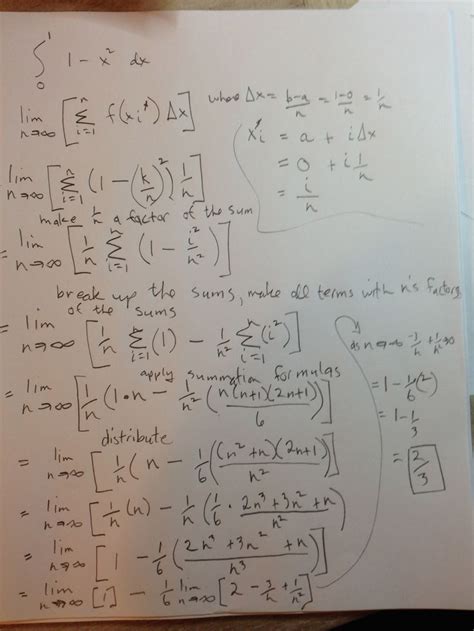 ∫₀¹ 1 - x² dx
lim n→∞ [ Σ i=1 n f(xi*) Δx ] where Δx = b-a/n = 1-0/n = 1/n
xi* = a + iΔx
= 0 + i 1/n
= i/n
lim n→∞ [ Σ i=1 n (1 - (k/n)²) 1/n ]
make 1/n a factor of the sum
= lim n→∞ [ 1/n Σ i=1 n (1 - i²/n²) ]
break up the sums, make all terms with n's factors
of the sums
= lim n→∞ [ 1/n Σ i=1 n (1) - 1/n² Σ i=1 n (i²) ]
apply summation formulas
= lim n→∞ [ 1/n (1·n - 1/n² (n(n+1)(2n+1)/6) ) ]
distribute
= lim n→∞ [ 1/n (n - 1/6 ((n²+n)(2n+1)/n²) ) ]
= lim n→∞ [ 1/n (n) - 1/n (1/6 · 2n³+3n²+n/n²) ]
= lim n→∞ [ 1 - 1/6 (2n³+3n²+n/n³) ]
= lim n→∞ [1] - 1/6 lim n→∞ [ 2 - 3/n + 1/n² ]
as n→∞ -3/n + 1/n² → 0
= 1 - 1/6 (2)
= 1 - 1/3
= 2/3